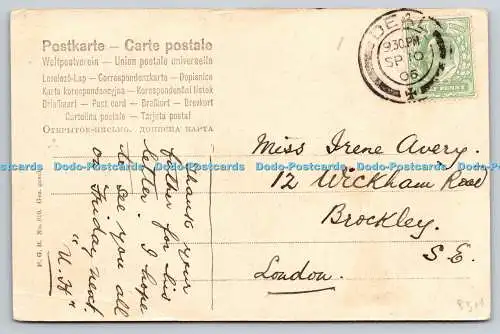 Postkarte - Carte postale
Weltpostverein - Union postale universelle
Levelező-Lap - Correspondenzkarte - Dopisnice
Karta korespondencyjna - Korespondenční lístek
Briefkaart - Post card - Brefkort - Brevkort
Cartolina postale - Tarjeta postal
Открытое письмо.
DERBY
9.30 PM
SP 10
06
Thank your
father for his
letter. I hope
to see you all
on Friday next.
"U. H"
Miss Irene Avery.
12 Wickham Road
Brockley.
S.E.
London.
Dodo-Postcards Dodo-Postcards Dodo-Postcards Dodo-Postcards Dodo-Postcards